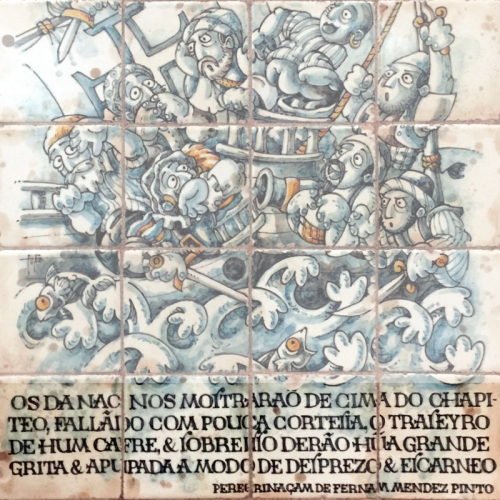 OS DA NAO NOS MOſTRARAÕ DE CIMA DO CHAPI-
TEO, FALLÃDO COM POUCA CORTEſIA, O TRAſEYRO
DE HUM CAFRE, & ſOBRE IſſO DERÃO HŨA GRANDE
GRITA & APUPADA A MODO DE DEſPREZO & EſCARNEO
PEREGRINAÇAM DE FERNAM MENDEZ PINTO